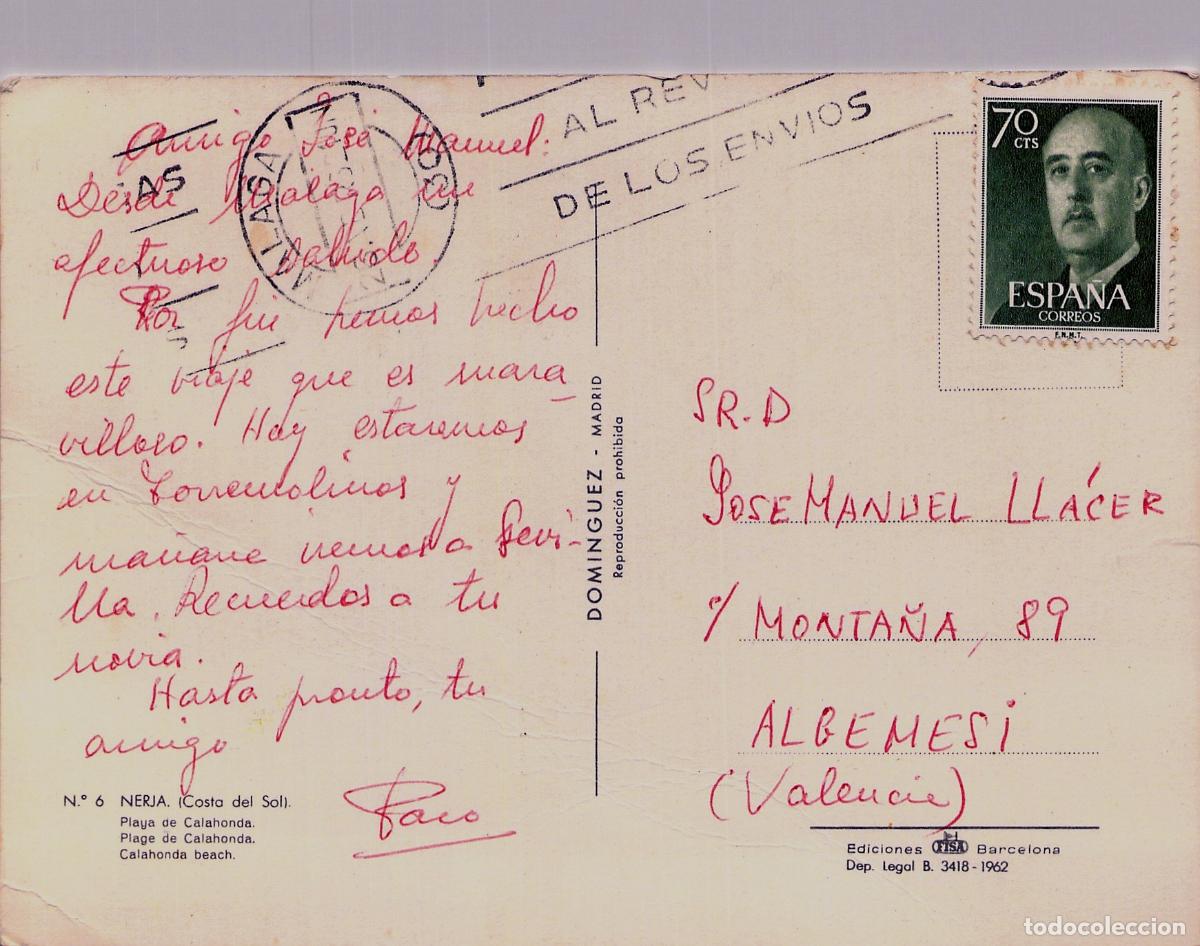 Amigo José Manuel:
Desde Málaga un
afectuoso saludo.
Por fin hemos hecho
este viaje que es mara
villoso. Hoy estaremos
en Torremolinos y
mañana iremos a Sevi-
lla. Recuerdos a tu
novia.
Hasta pronto, tu
amigo
Paco
N.º 6 NERJA. (Costa del Sol).
Playa de Calahonda.
Plage de Calahonda.
Calahonda beach.
MALAGA
AS
AL REV
DE LOS ENVIOS
DOMINGUEZ - MADRID
Reproducción prohibida
70
CTS
ESPAÑA
CORREOS
F.N.M.T.
SR. D
JOSE MANUEL LLÁCER
c/ MONTAÑA, 89
ALGEMESI
(Valencia)
Ediciones FISA Barcelona
Dep. Legal B. 3418 - 1962
todocoleccion